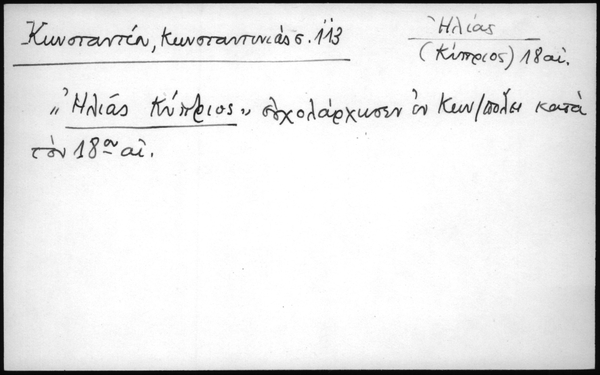 Κωνσταντίου, Κωνσταντινιὰς σ. 113
Ἠλίας
(Κύπριος) 18 αἰ.
"Ἠλίας Κύπριος" ἐσχολάρχησεν ἐν Κων/πόλει κατὰ
τὸν 18ον αἰ.